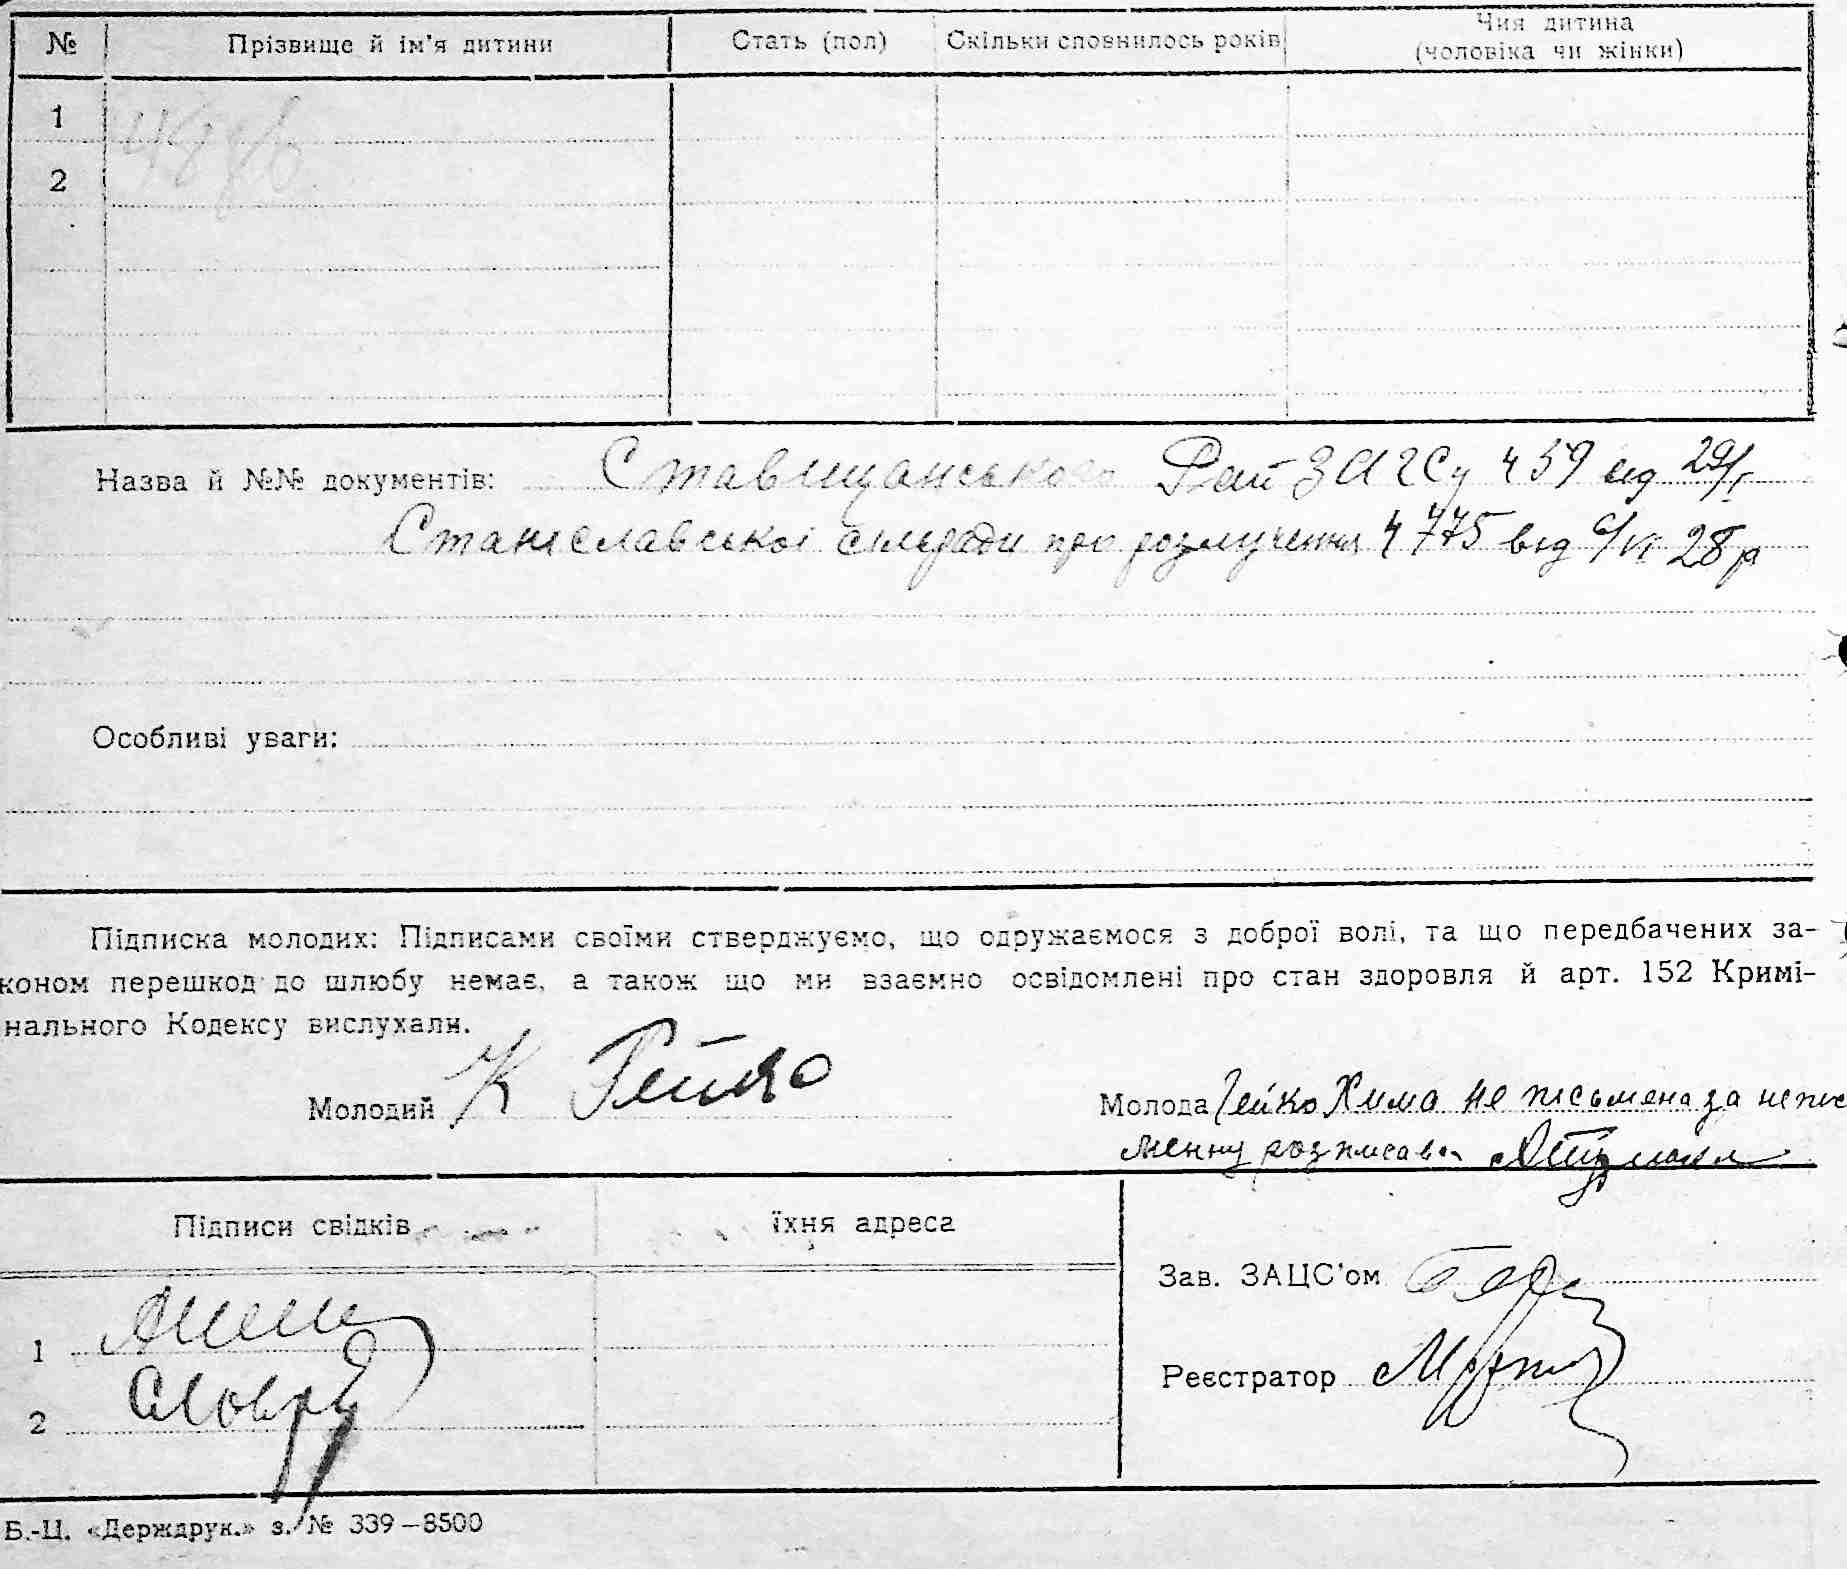 № Прізвище й ім'я дитини Стать (пол) Скільки сповнилось років Чия дитина
(чоловіка чи жінки)
1
2
Назва й №№ документів: Ставищанського Рай ЗАГСу ч 59 від 29/I
Станіславської сільради про розлучення ч 775 від 28 р
Особливі уваги:
Підписка молодих: Підписами своїми стверджуємо, що одружаємося з доброї волі, та що передбачених за-
коном перешкод до шлюбу немає, а також що ми взаємно освідомлені про стан здоровля й арт. 152 Кримі-
нального Кодексу вислухали.
Молодий К Гейко
Молода Гейко Хима не письмена за непись
менну розписався
Підписи свідків їхня адреса
Зав. ЗАЦС'ом
1
Реєстратор
2
Б.-Ц. «Держдрук.» з. № 339–8500